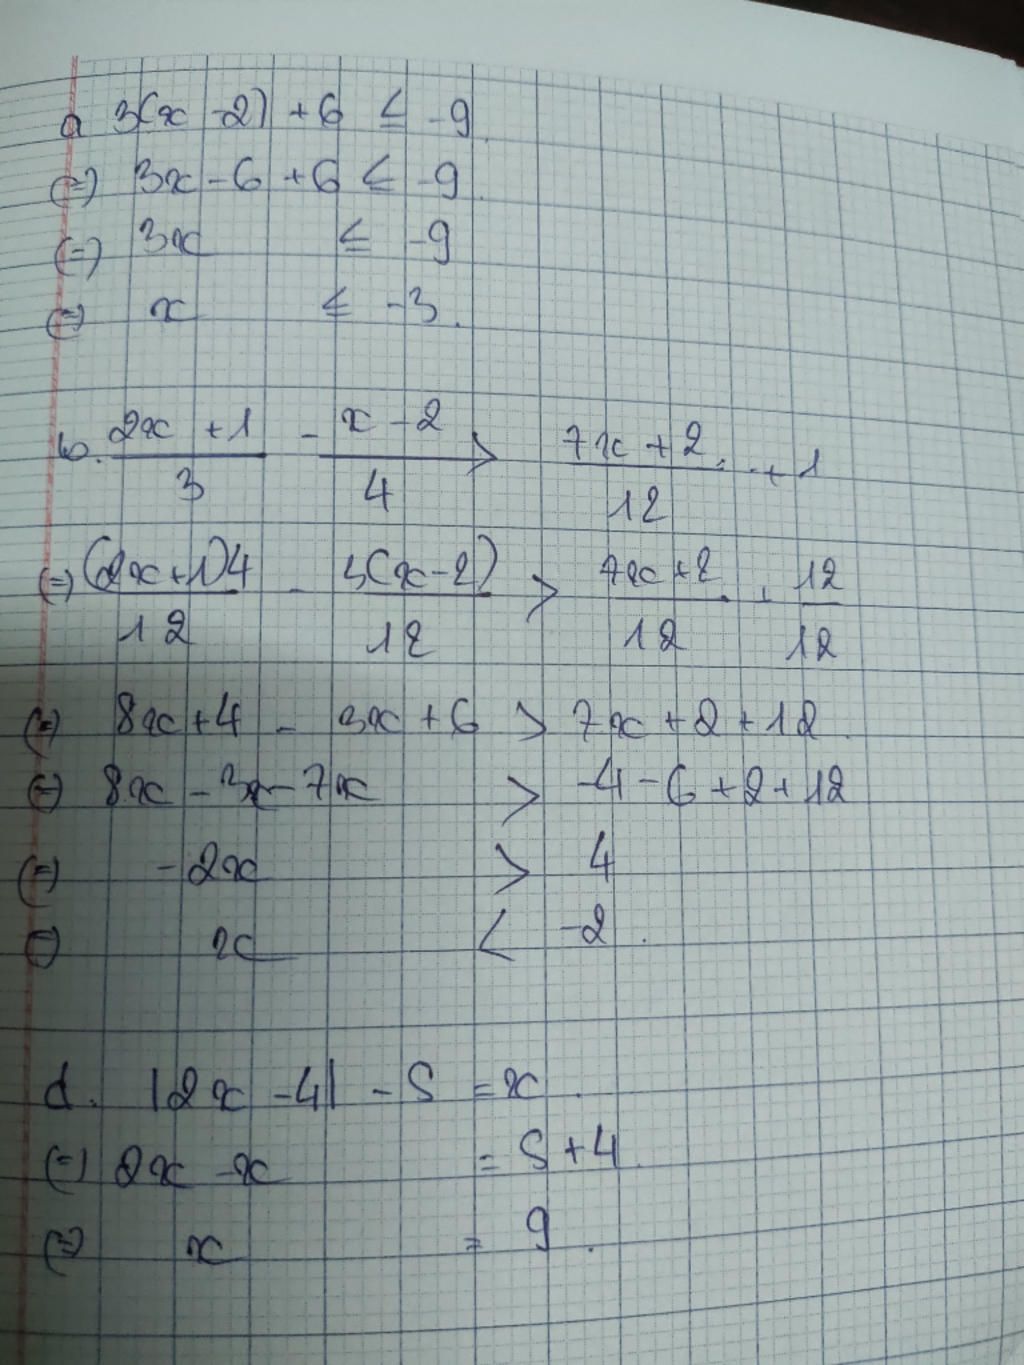 a 3(x -2) +6 ≤ -9
(=) 3x -6 +6 ≤ -9.
(=) 3x ≤ -9
(=) x ≤ -3.
b. (2x +1)/3 - (x -2)/4 > (7x +2)/12 +1
(=) (2x+1)4/12 - 3(x-2)/12 > (7x+2)/12 + 12/12
(=) 8x+4 - 3x +6 > 7x +2 +12.
(=) 8x -3x -7x > -4 -6 +2 +12
(=) -2x > 4
(=) x < -2.
d. |2x -4| -5 = x.
(=) 2x -x = 5 +4.
(=) x = 9.